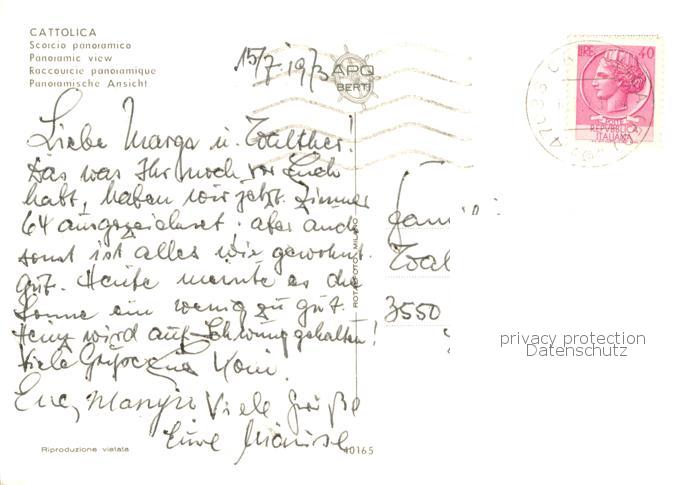 CATTOLICA
Scorcio panoramico
Panoramic view
Raccourcie panoramique
Panoramische Ansicht
15/7. 1973
APO
BERTI
LIRE 40
POSTE
REPVBBLICA
ITALIANA
Liebe Marga u. Walther!
Das was Ihr noch vor Euch
habt, haben wir jetzt. Zimmer
64 ausgezeichnet, aber auch
sonst ist alles wie gewohnt
gut. Heute meinte es die
Sonne ein wenig zu gut.
Heinz wird auf Schwung gehalten!
Viele Grüsse
Viele Grüße
Eure
Fami
Wal
3550
ROTALFOTO MILANO
privacy protection
Datenschutz
Riproduzione vietata
40165